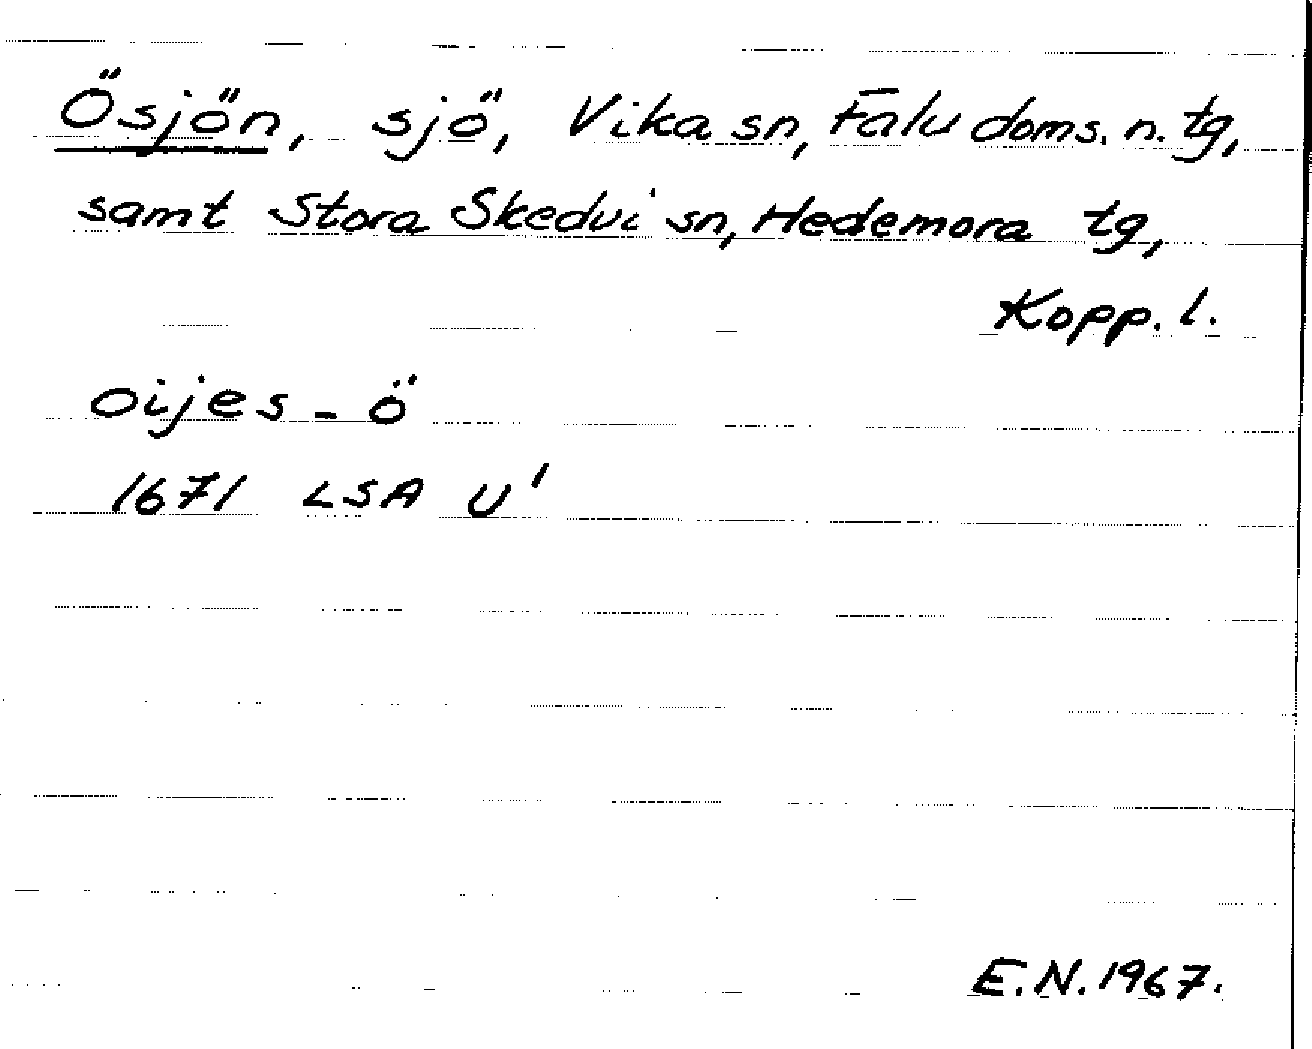 Ösjön, sjö, Vika sn, Falu doms. n. tg,
samt Stora Skedvi sn, Hedemora tg,
Kopp. l.
Oijes - ö
1671 LSA U'
E.N. 1967.